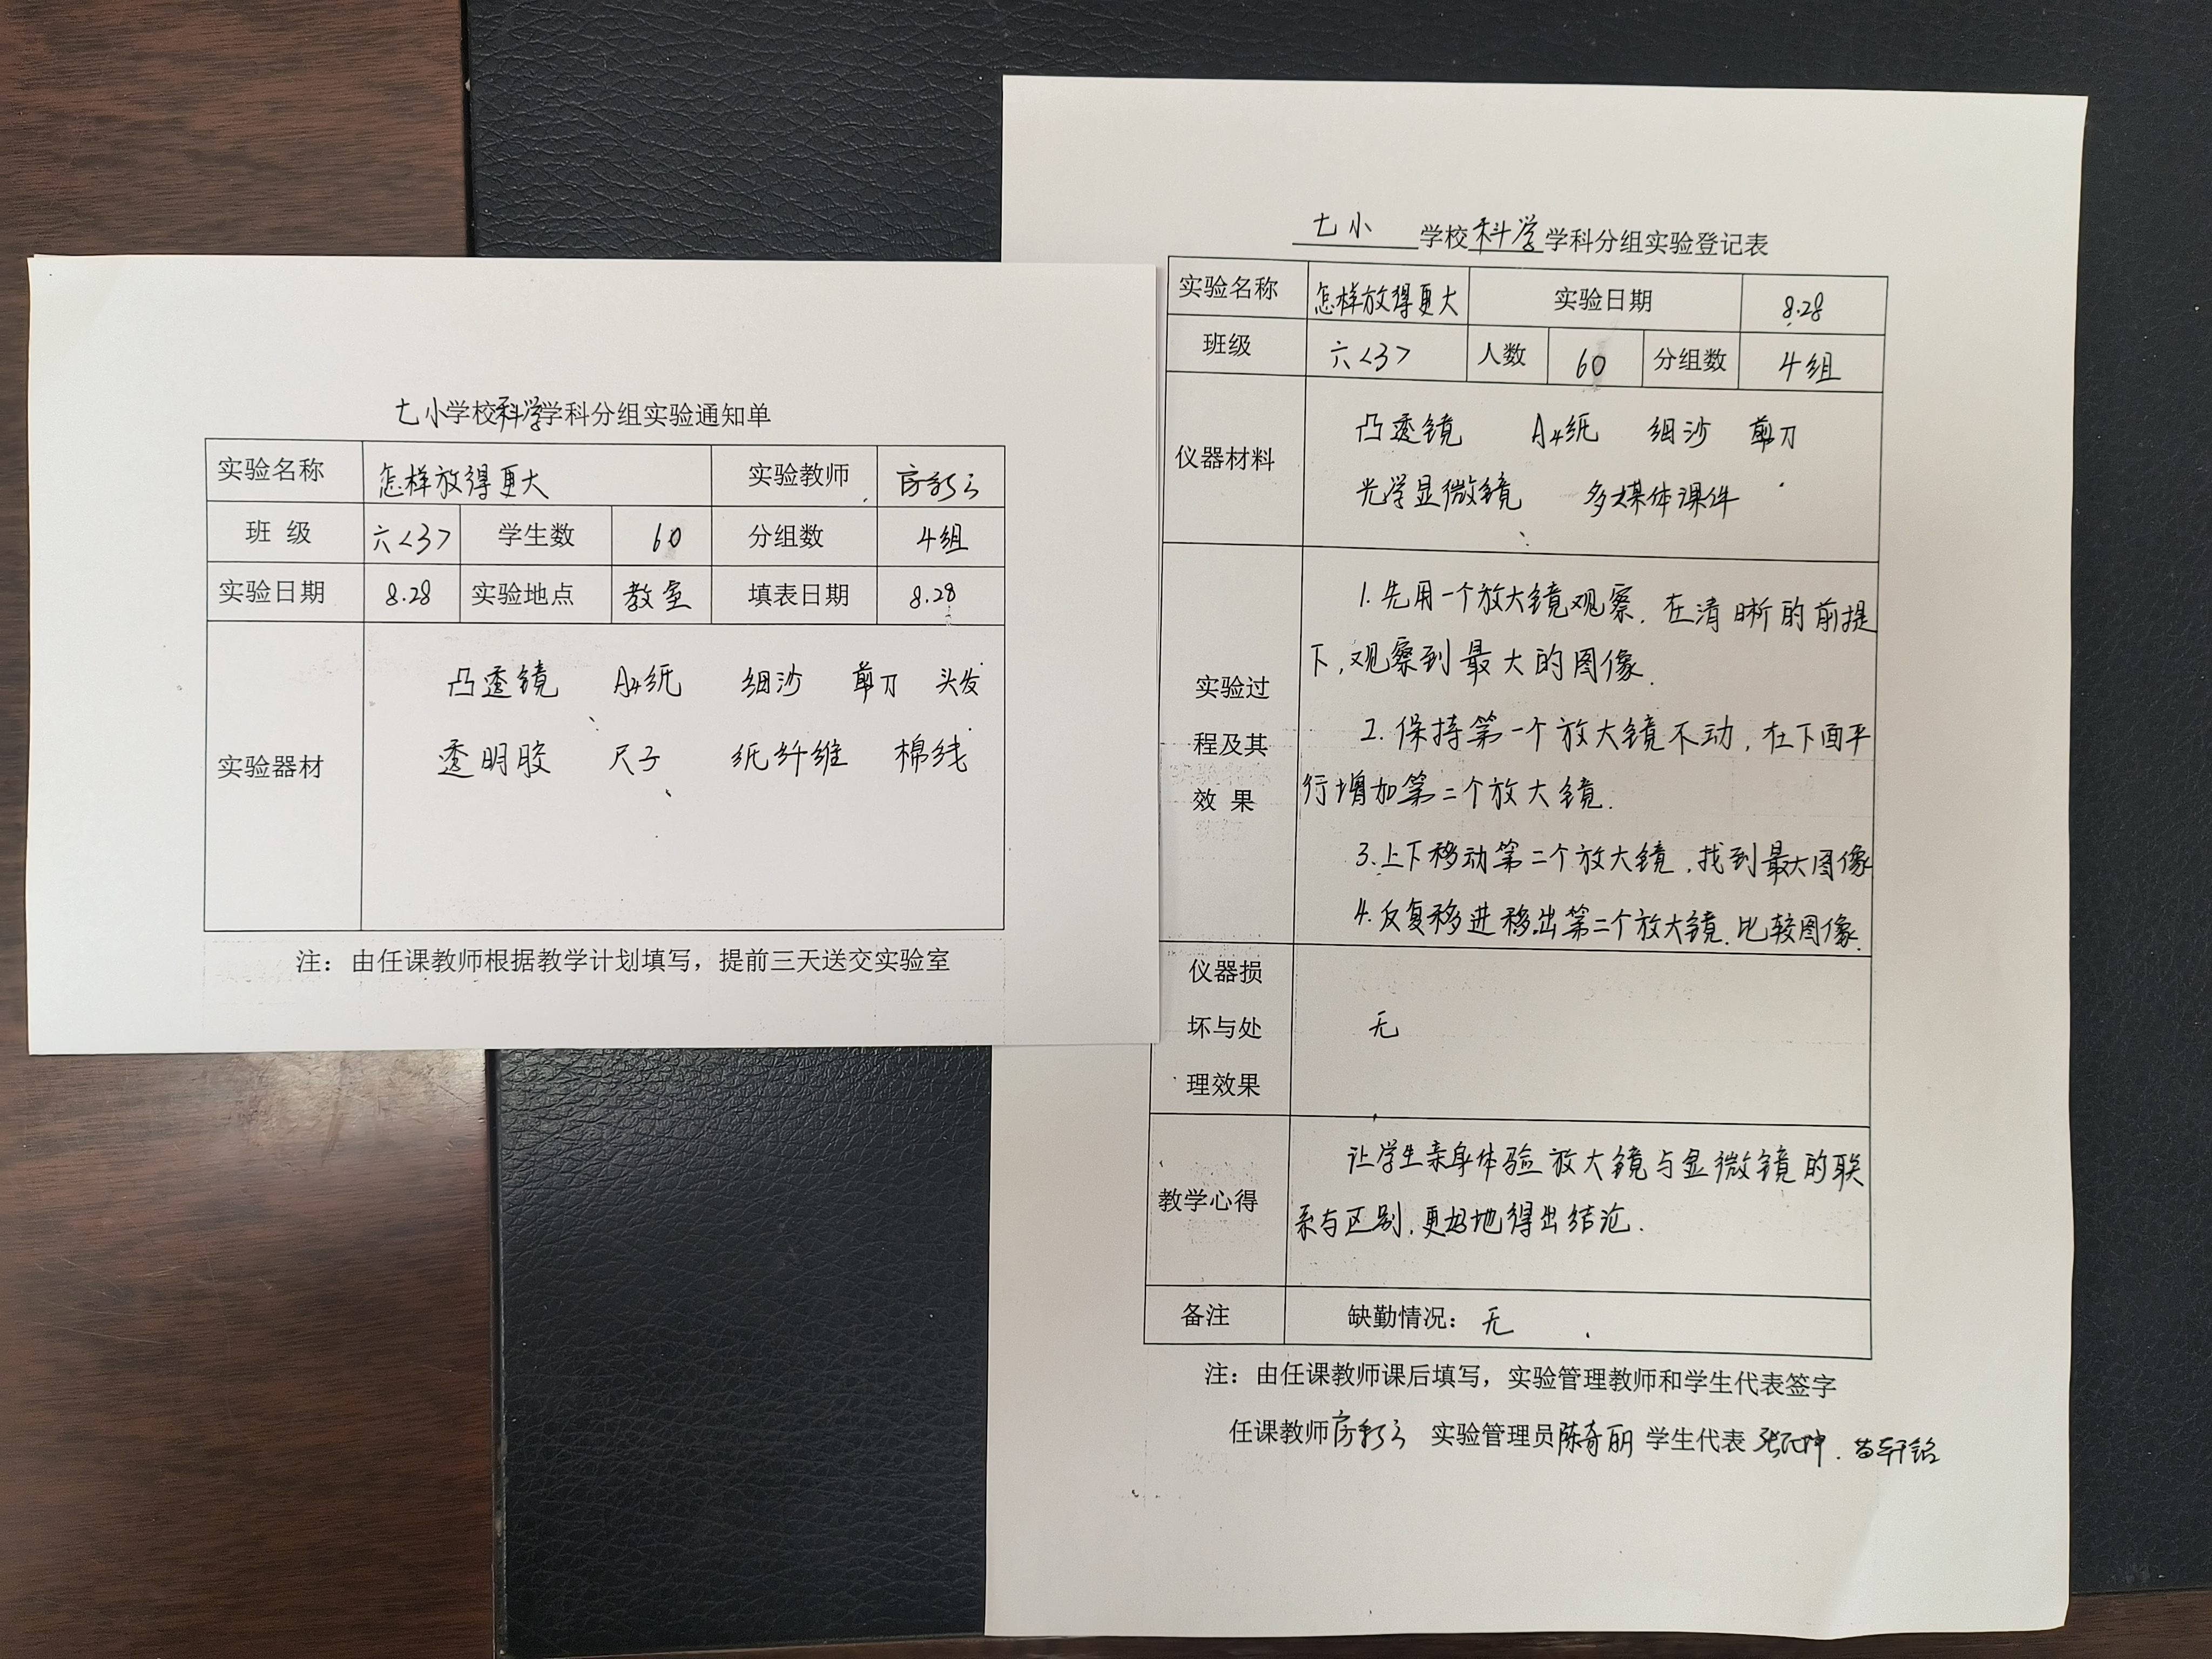 七小学校科学学科分组实验通知单
实验名称 怎样放得更大 实验教师
班 级 六<3> 学生数 60 分组数 4组
实验日期 8.28 实验地点 教室 填表日期 8.28
实验器材
凸透镜 A4纸 细沙 剪刀 头发
透明胶 尺子 纸纤维 棉线
注：由任课教师根据教学计划填写，提前三天送交实验室
七小 学校科学学科分组实验登记表
实验名称 怎样放得更大 实验日期 8.28
班级 六<3> 人数 60 分组数 4组
仪器材料
凸透镜 A4纸 细沙 剪刀
光学显微镜 多媒体课件
实验过
程及其
效 果
1.先用一个放大镜观察.在清晰的前提
下,观察到最大的图像.
2.保持第一个放大镜不动,在下面平
行增加第二个放大镜.
3.上下移动第二个放大镜,找到最大图像
4.反复移进移出第二个放大镜.比较图像.
仪器损
坏与处
理效果
无
教学心得
让学生亲身体验放大镜与显微镜的联
系与区别,更好地得出结论.
备注 缺勤情况：无
注：由任课教师课后填写，实验管理教师和学生代表签字
任课教师 实验管理员陈奇丽 学生代表